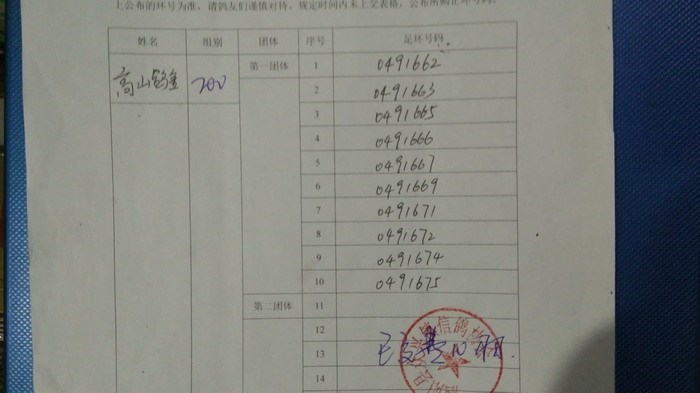 上公布的环号为准，请鸽友们谨慎对待。规定时间内未上交表格，公布所购正环号码。
姓名 组别 团体 序号 足环号码
高山鸽 200 第一团体 1 0491662
2 0491663
3 0491665
4 0491666
5 0491667
6 0491669
7 0491671
8 0491672
9 0491674
10 0491675
第二团体 11
12
13
14
信鸽